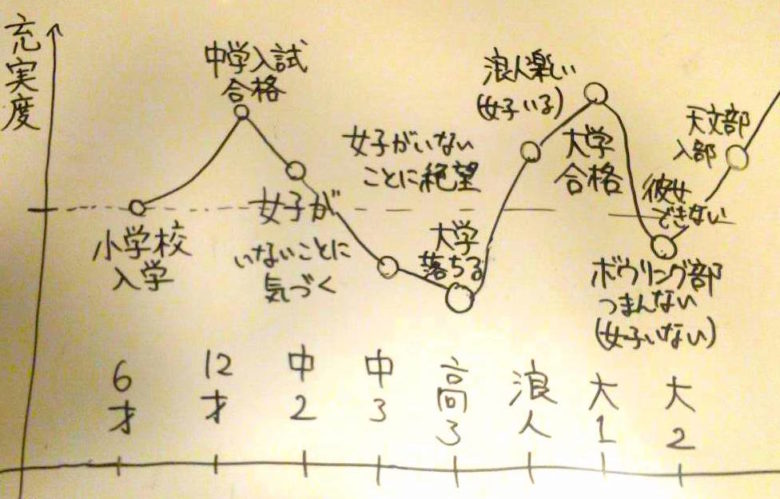 充実度
中学入試
合格
小学校
入学
女子が
いないことに
気づく
女子がいない
ことに絶望
大学
落ちる
浪人楽しい
(女子いる)
大学
合格
彼女
できない
ボウリング部
つまんない
(女子いない)
天文部
入部
6才
12才
中2
中3
高3
浪人
大1
大2